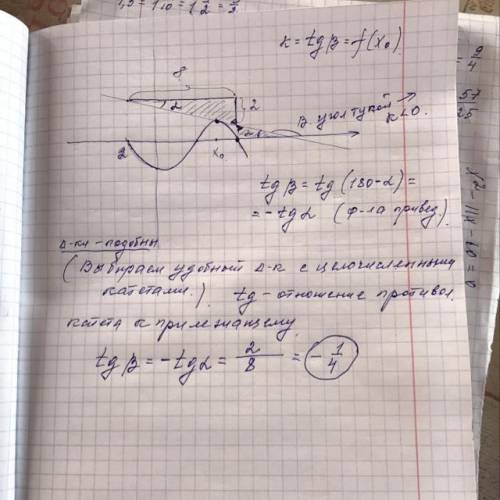 1,5 = 1,10 = 1 1/2 = 3/2
к = tg β = f(x₀)
8
2
2
α
В. угол тупой
к < 0.
2
x₀
tg β = tg (180 - α) =
= - tg α (ф-ла привед.)
Δ-ки - подобны
(Выбираем удобный Δ-к с целочисленными
катетами.) tg - отношение противол.
катета к прилежащему.
tg β = - tg α = 2/8 = - 1/4
9/4
57
25